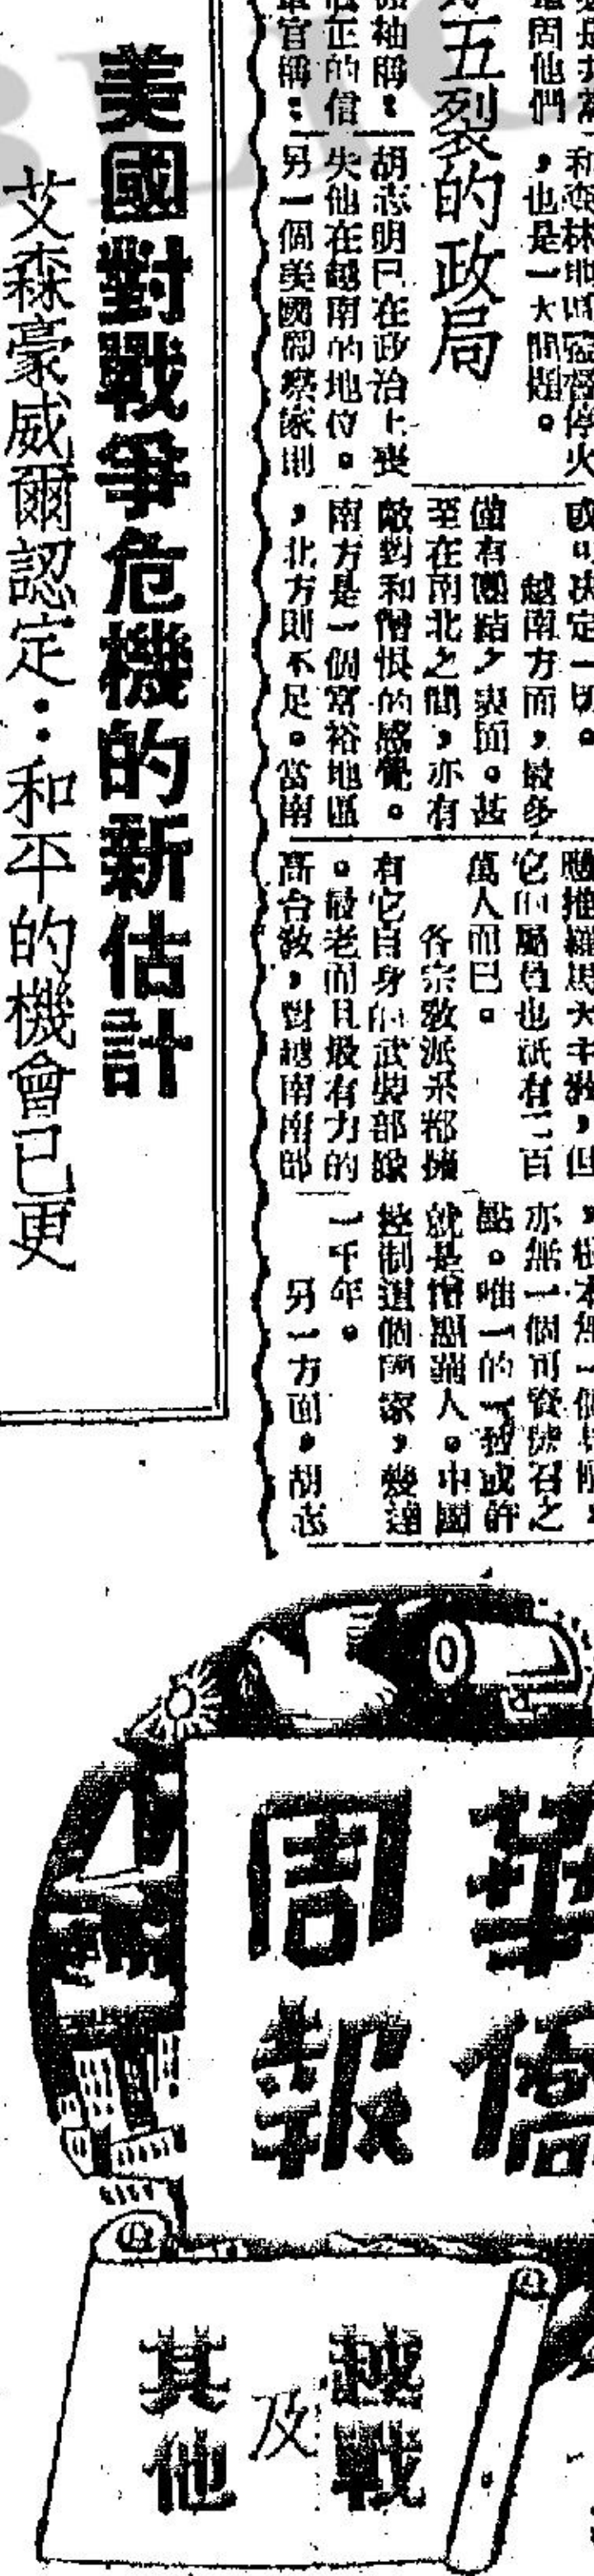 和森林地區監督停火
圍他們，也是一大問題。
五裂的政局
袖稱：
正的信
軍官稱：
胡志明已在政治上喪
失他在越南的地位。
另一個美國觀察家則
或可決定一切。
越南方面，最多
僅有團結之表面。甚
至在南北之間，亦有
敵對和憎恨的感覺。
南方是一個富裕地區
，北方則不足。當南
應推羅馬天主教，但
它的屬員也祇有二百
萬人而已。
各宗教派系都擁
有它自身的武裝部隊
。最老而且最有力的
高台教，對越南南部
，根本無一個
亦無一個可資號召之
點。唯一的一致或許
就是憎惡華人。中國
控制這個國家，幾達
一千年。
另一方面，胡志
美國對戰爭危機的新估計
艾森豪威爾認定：和平的機會已更
華僑
周報
越戰
及
其他